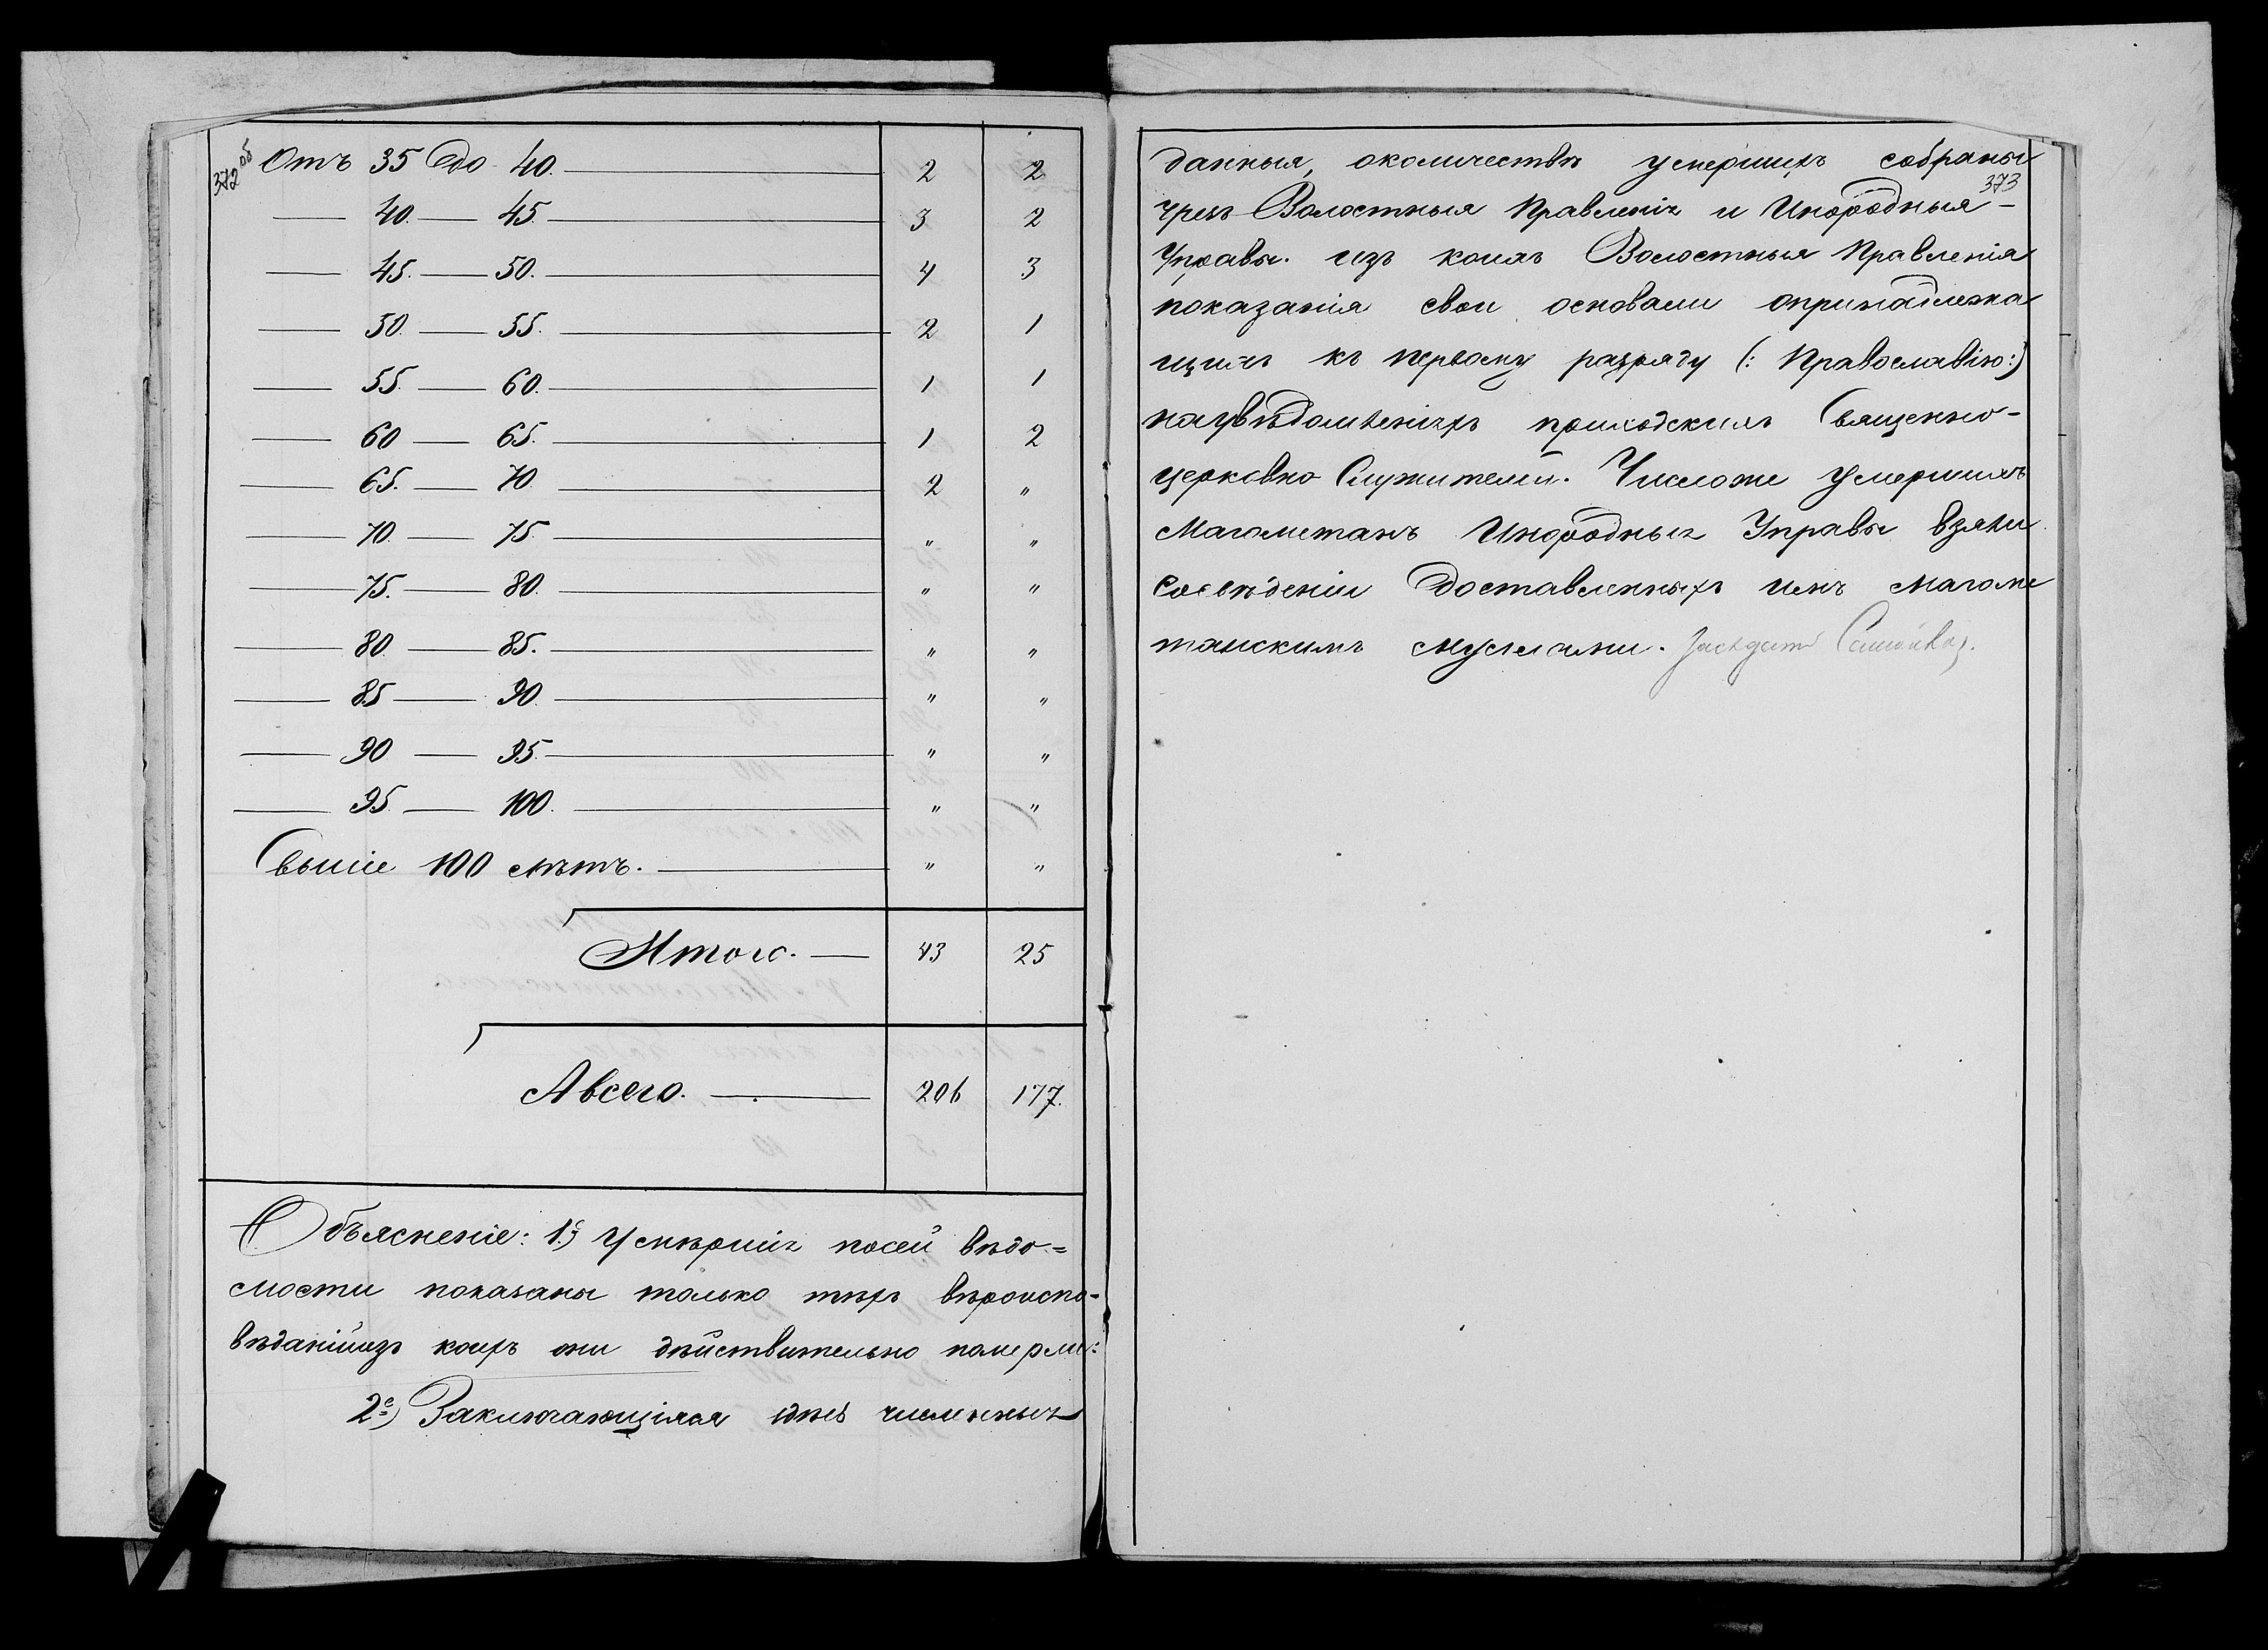 372 об
Отъ 35 до 40. — 2 2
— 40. — 45. — 3 2
— 45. — 50. — 4 3
— 50. — 55. — 2 1
— 55. — 60. — 1 1
— 60 — 65. — 1 2
— 65. — 70 — 2 "
— 70. — 75. — " "
— 75. — 80. — " "
— 80. — 85. — " "
— 85 — 90. — " "
— 90 — 95. — " "
— 95. — 100. — " "
Свыше 100 лѣтъ. — " "
Итого. — 43 25
Авсего. — 206 177.
Объясненіе: 1.е) Умѣршія посей вѣдо=
мости показаны только тѣхъ вѣроиспо-
вѣданійизъ коихъ они дѣйствительно померли:
2е) Заключающіяся здѣсь численныя
373
данныя, околичествѣ умершихъ собраны
чрезъ Волостныя Правленія и Инородныя -
Управы. изъ коихъ Волостныя Правленія
показанія свои основали опринадлежа
щихъ къ первому разряду (: Православію:)
наувѣдомленіяхъ приходскихъ Священно-
церковно Служителей. Числоже умершихъ
Магометанъ Инородныя Управы взяли
Сосвѣденіи доставленныхъ имъ магоме
танскимъ муллами.